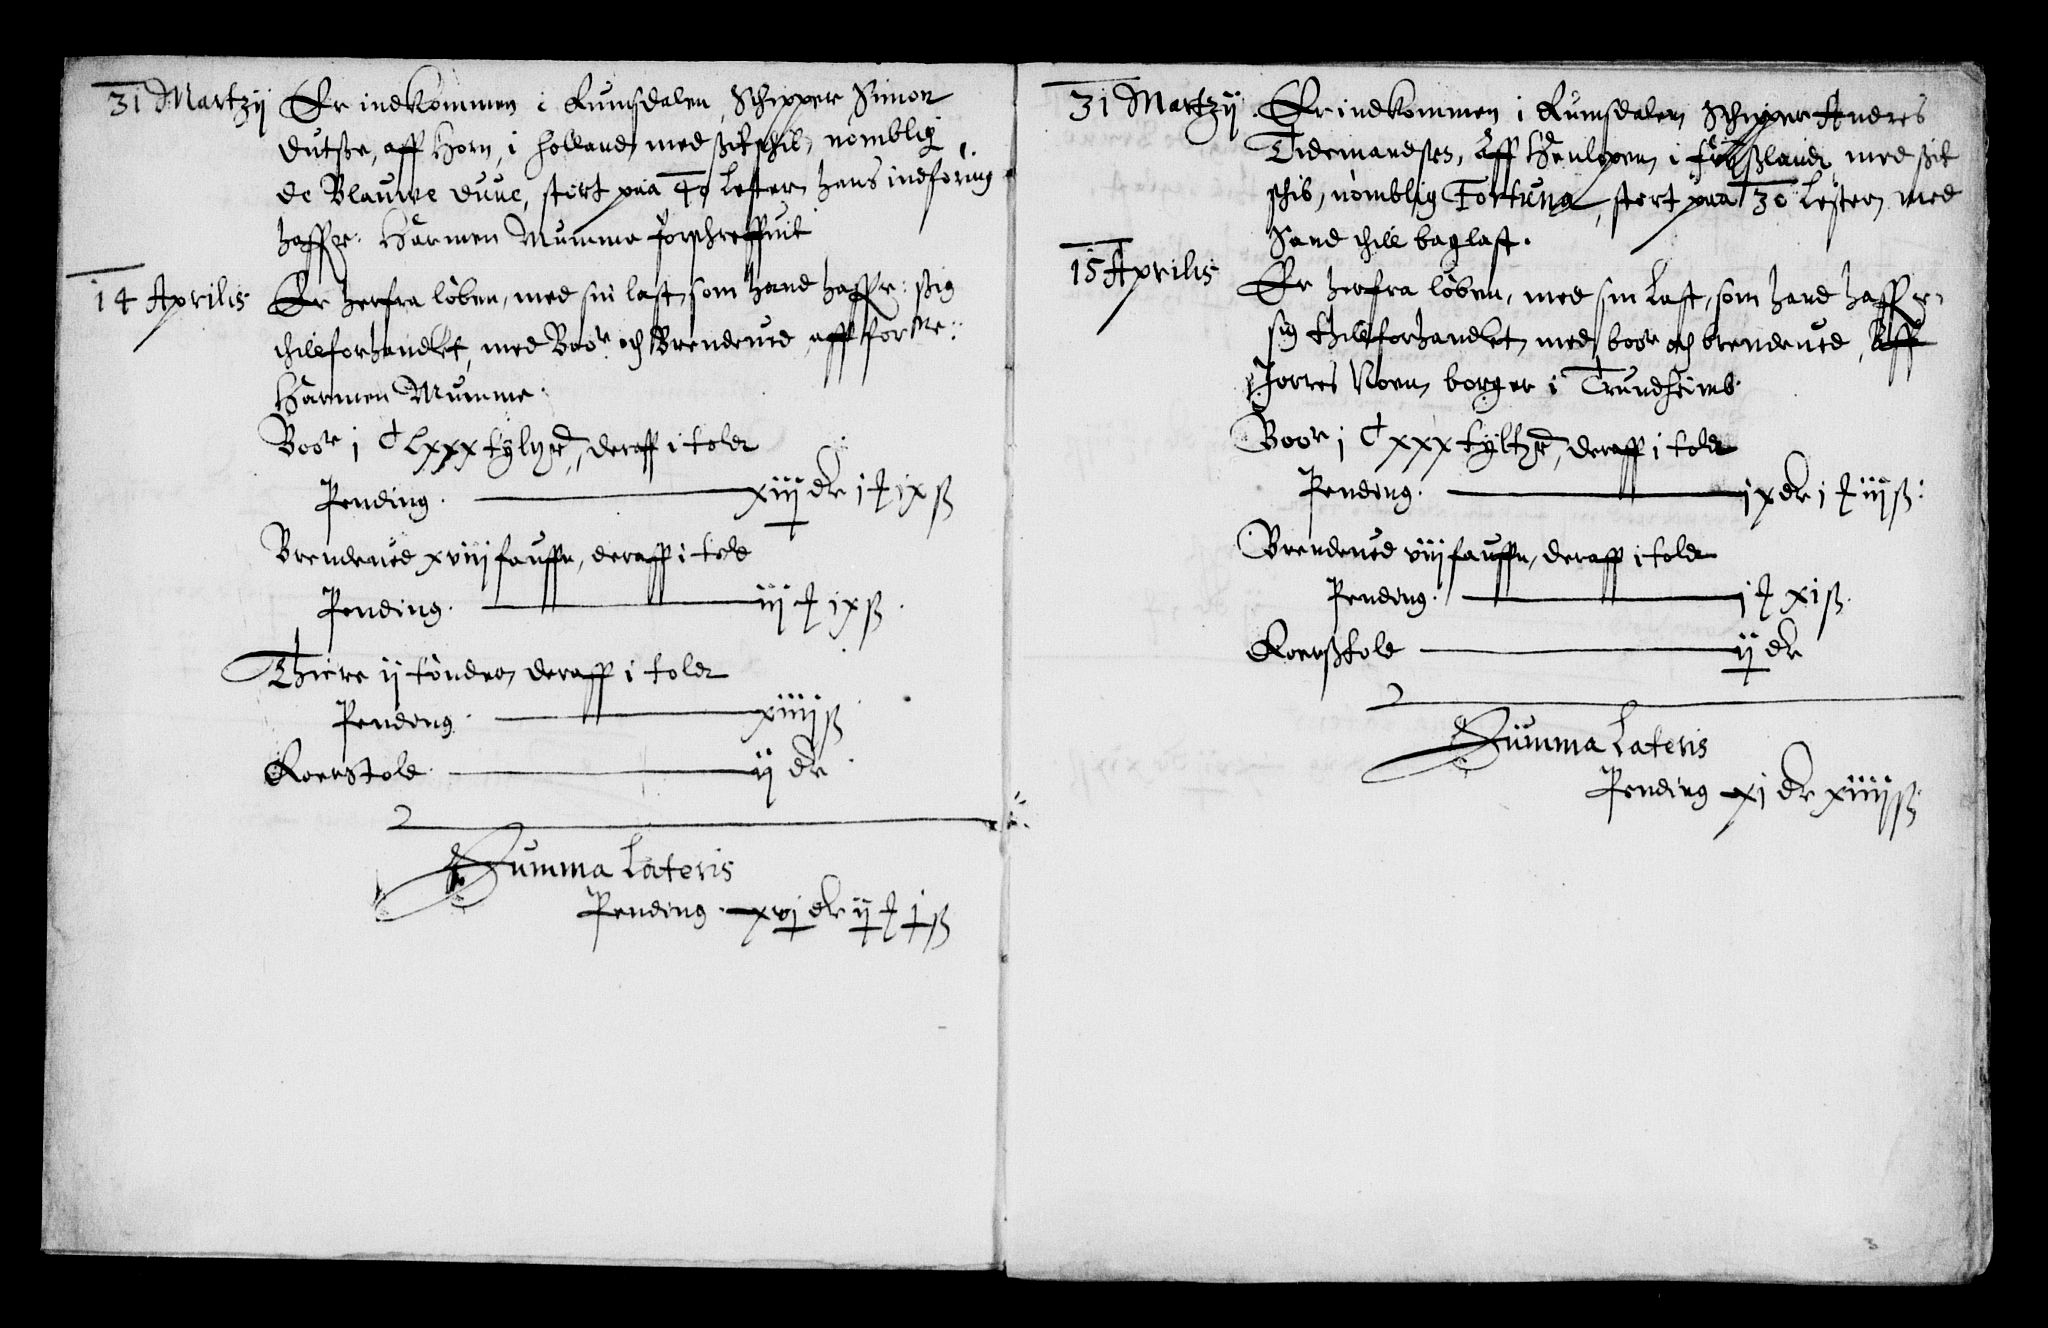 31 Martzij Er indkommen i Rumsdalen, Schipper Simon
dutße, aff Horn, i Holland, med ßit schib, nomblig
de Blauwe duue, stort paa 40 Lester, hans indføring
haffr: Harmen Mumme forschreffuit
14 Aprilis Er herfra løben, med sin last, som hand haffr: ßig
thillforhandlet, med Boor och Brendeued, aff for.ne:
Harmen Mumme.
Boor j C Lxxx tyltzr, deraff i told
Pending. xiij dr i ƭ ix ß
Brendeued xviij fauffn, deraff i told
Pending. iij ƭ ix ß.
Thiere ij tønder, deraff i told
Pending. xiiij ß
Roerstold ij dr.
Summa Lateris
Pending. xvj dr ij ƭ j ß
31 Martzij. Er indkommen i Rumsdalen Schipper Andres
Tidemandses, aff Henlopen, i frißland, med ßit
schib, nomblig Fortuna, stort paa 30 Lester, med
Sand thill baglast.
15 Aprilis Er herfra løben, med sin Last, som hand haffr
sig thillforhandlet, med boor och brendeued, Aff
Jorres Noen, borger i Trundheimb
Boor j C xxx tyltzr, deraff i told
Pending. ix dr i ƭ iij ß:
Brendeued viij fauffn, deraff i told
Pending. j ƭ xi ß.
Roerßtold ij dr
Summa Lateris
Pending xj dr xiiij ß.
3